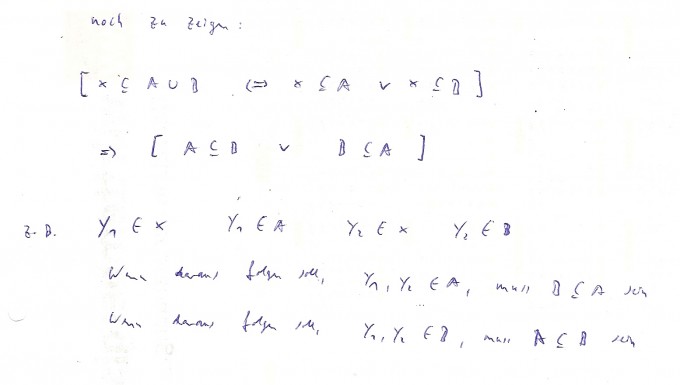 noch zu zeigen:
[ x ⊆ A ∪ B ⇔ x ⊆ A ∨ x ⊆ B ]
⇒ [ A ⊆ B ∨ B ⊆ A ]
z. B. y₁ ∈ x y₁ ∈ A y₂ ∈ x y₂ ∈ B
Wenn daraus folgen soll, y₁, y₂ ∈ A, muss B ⊆ A sein
Wenn daraus folgen soll, y₁, y₂ ∈ B, muss A ⊆ B sein